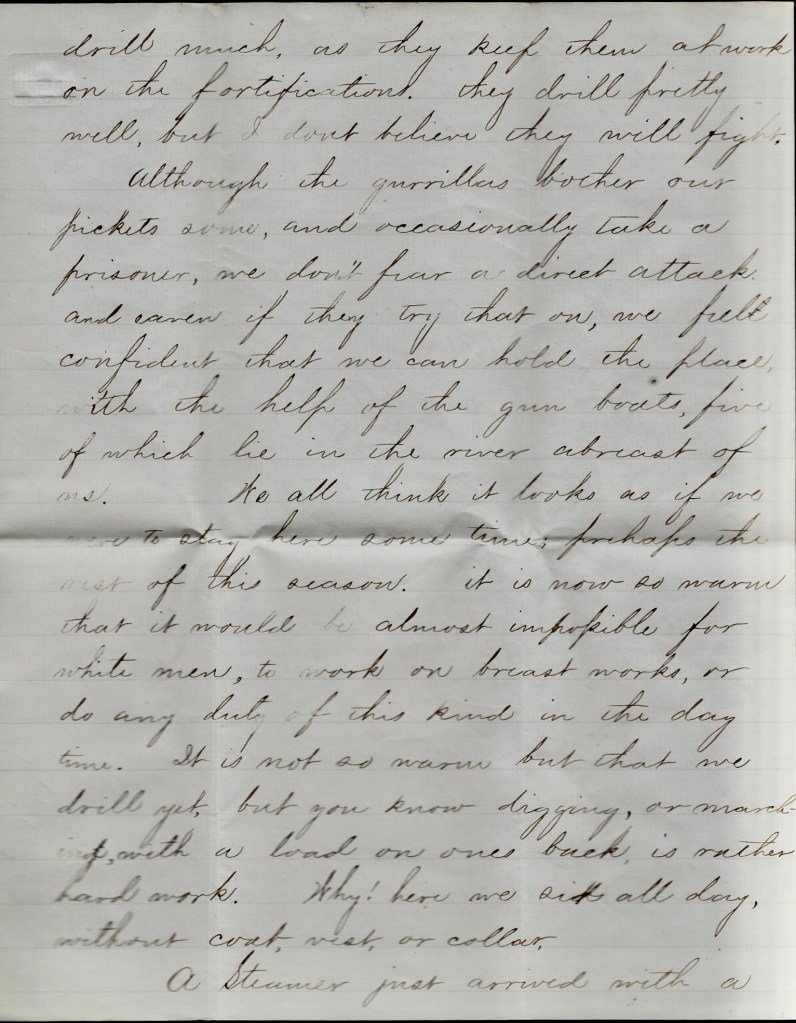 drill much, as they keep them at work
on the fortifications. they drill pretty
well, but I dont believe they will fight.
Although the gurrillas bother our
pickets some, and occasionally take a
prisoner, we don't fear a direct attack.
and eaven if they try that on, we feel
confident that we can hold the place,
with the help of the gun boats, five
of which lie in the river abreast of
us. We all think it looks as if we
were to stay here some time; perhaps the
rest of this season. it is now so warm
that it would be almost impossible for
white men, to work on breast works, or
do any duty of this kind in the day
time. It is not so warm but that we
drill yet, but you know digging, or march-
ing, with a load on ones back, is rather
hard work. Why! here we sit all day,
without coat, vest, or collar.
A Steamer just arrived with a